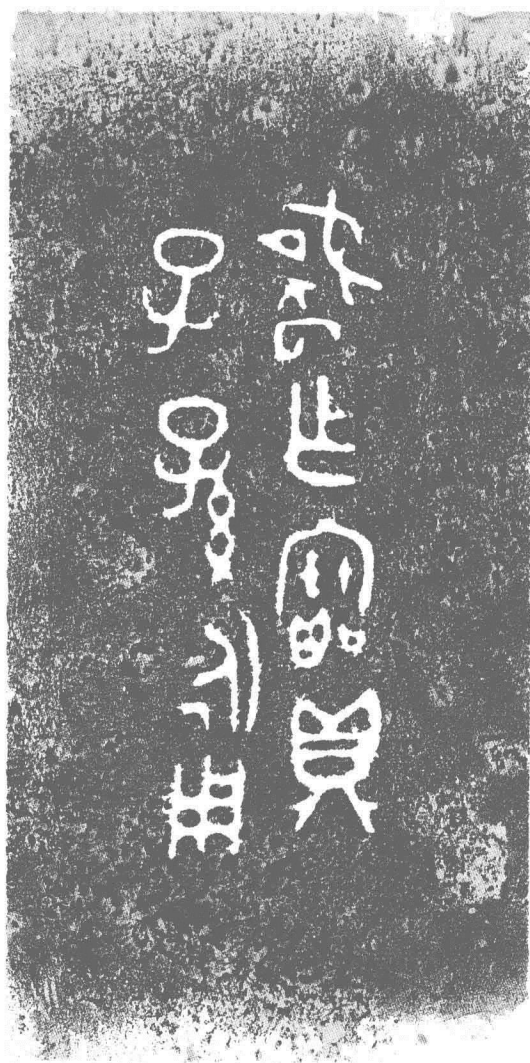 乍寶鼎
子孫永用